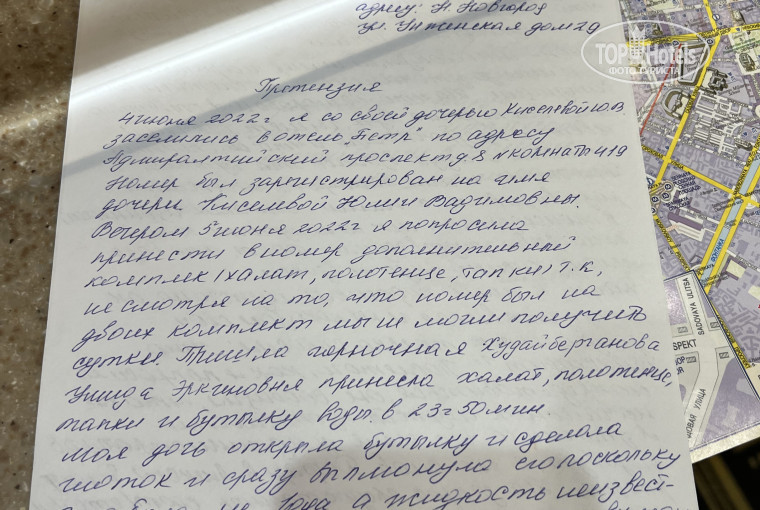 адресу: Н. Новгород
ул. Унженская дом 29
Претензия
4 июня 2022г я со своей дочерью Киселевой Ю.В.
заселились в отель "Петр" по адресу
Адмиралтийский проспект д. 8 № комнаты 419
Номер был зарегистрирован на имя
дочери Киселевой Юлии Вадимовны.
Вечером 5 июня 2022г я попросила
принести в номер дополнительный
комплек (халат, полотенце, тапки) т.к,
не смотря на то, что номер был на
двоих комплект мы не могли получить
сутки. Пришла горночная Худайберганова
Умида Эркиновня принесла халат, полотенце,
тапки и бутылку воды в 23г50мин.
моя дочь открыла бутылку и сделала
глоток и сразу выплюнула
вода а жидкость неизвест-
TOP Hotels
ФОТО ТУРИСТА
SADOVAYA ULITSA
САДОВАЯ УЛИЦА